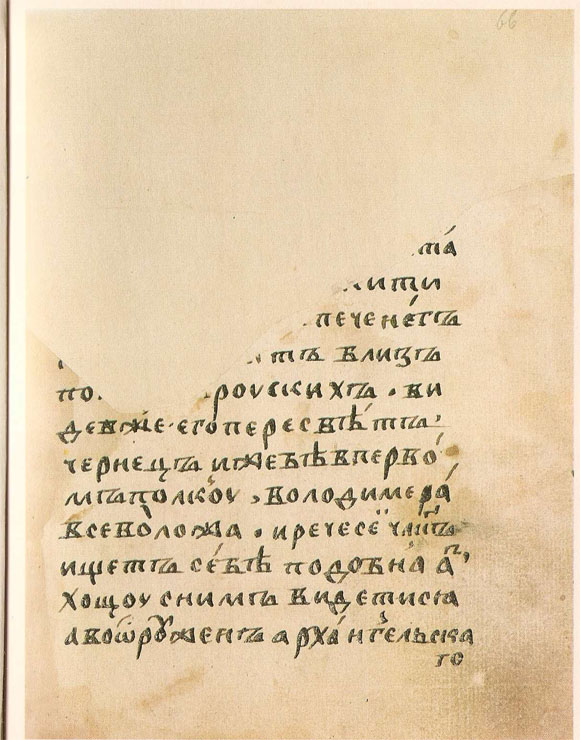 66
та
ити
печенѣгъ
тъ близъ
по роускихъ · ви
девже его пересвѣтъ
чернецъ иже бѣ в перво
мъ полкоу · володимера
всеволожа · и рече се члкъ
ищетъ себѣ подобна аꙁ
хощоу с нимъ видетися
а воѡроуженъ архангельска
го